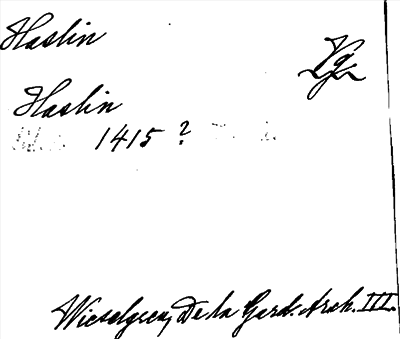 Haslin
Vg
Haslin
1415 ?
Wieselgren, De la Gard. Ark. III.